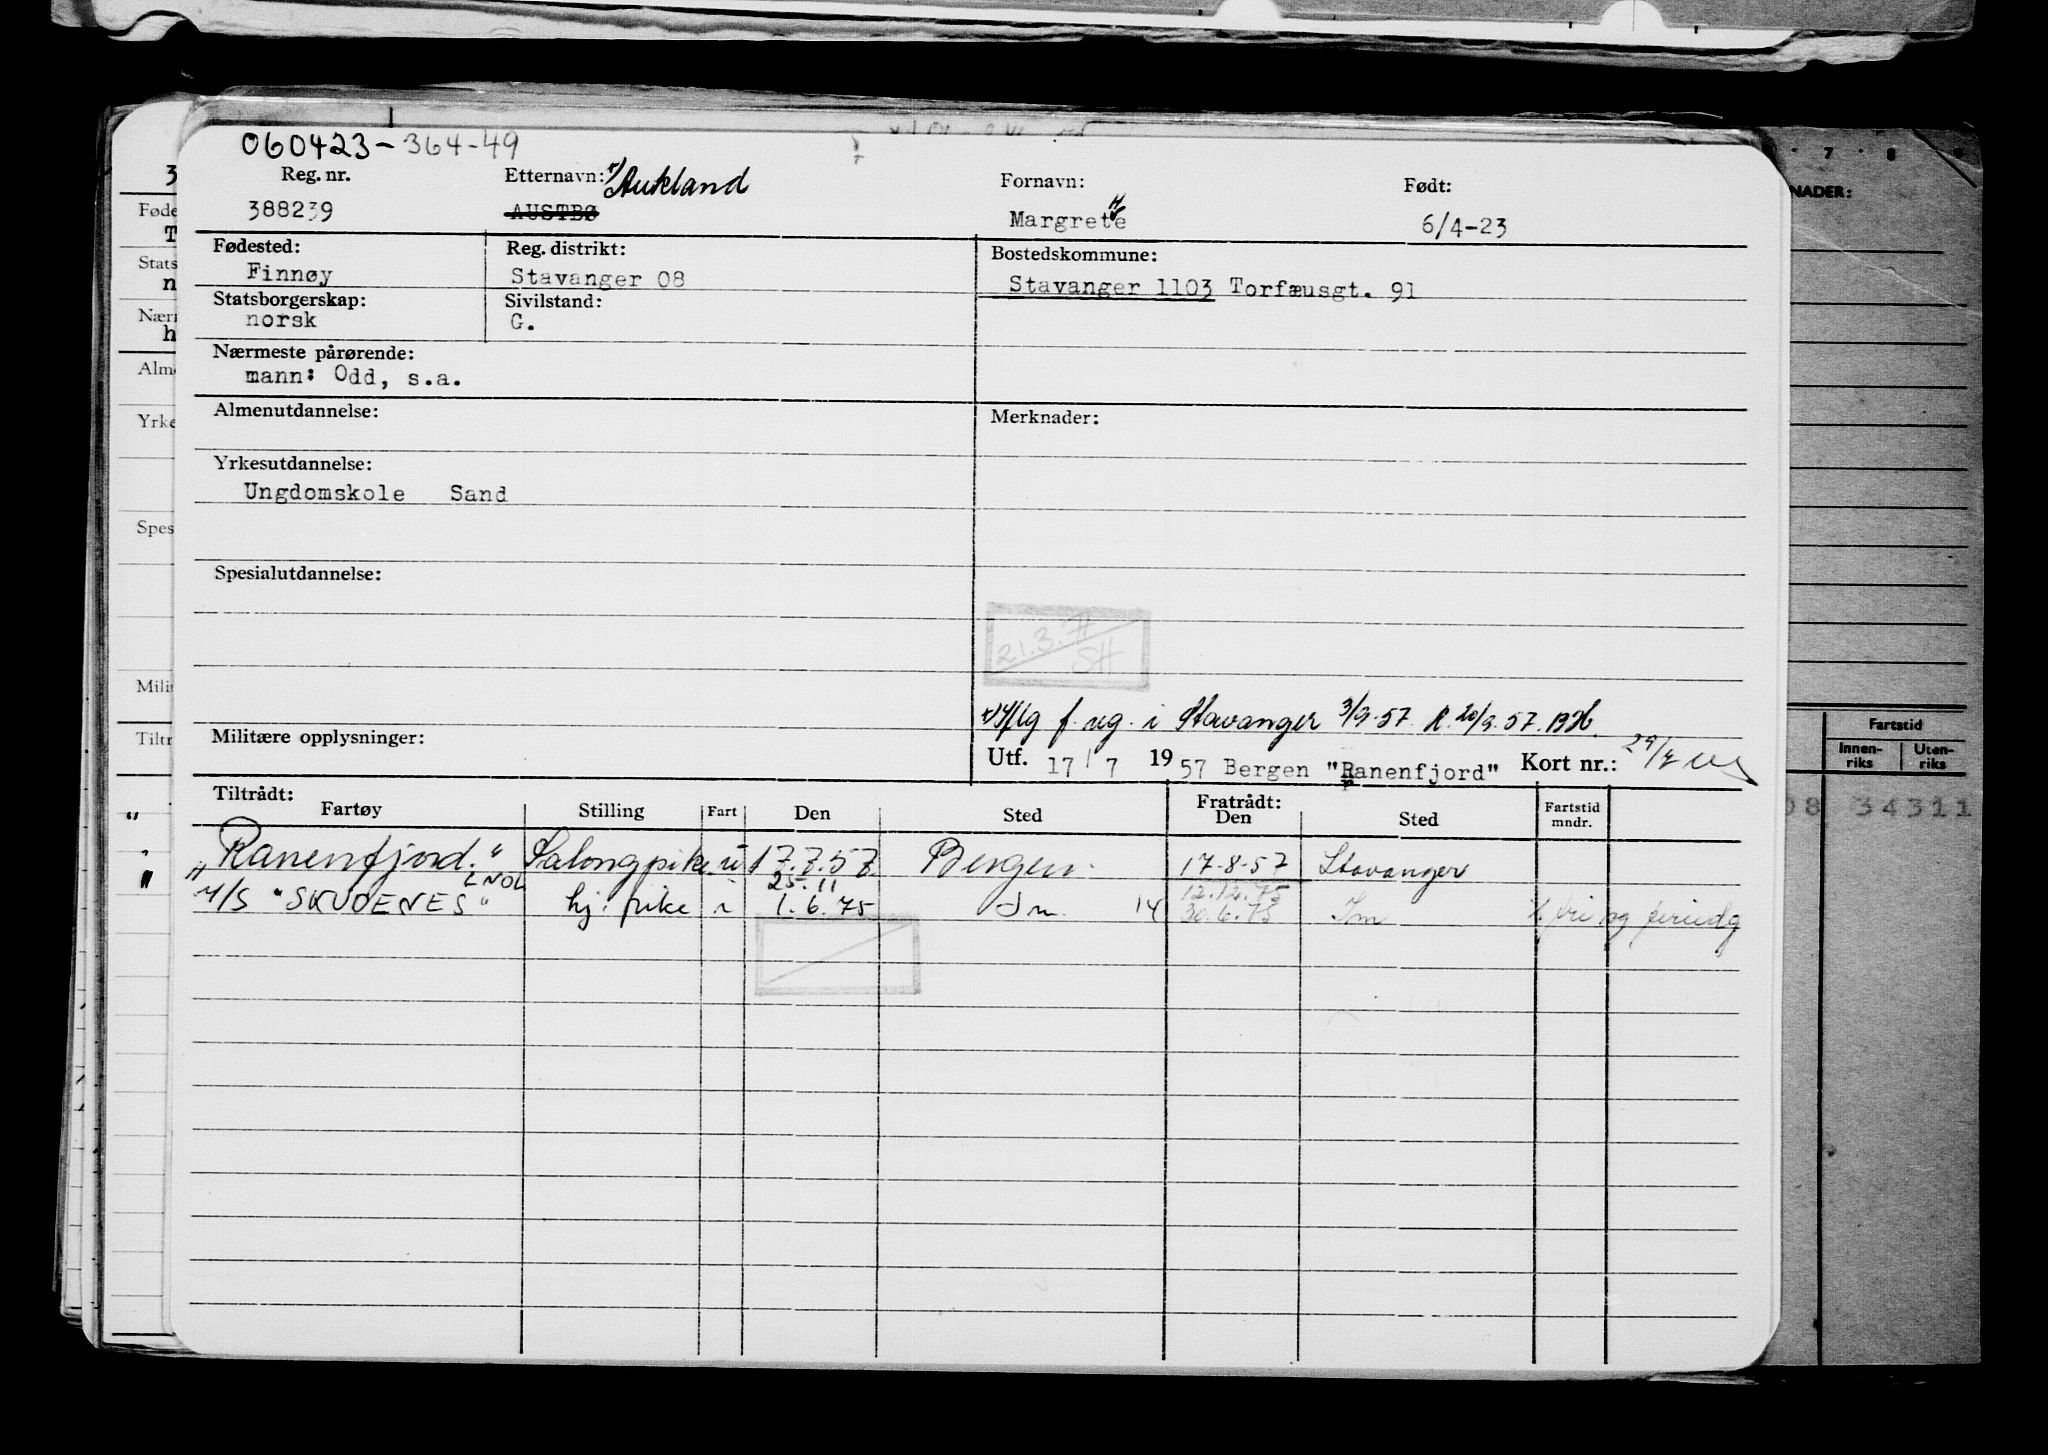 060423-364-49
Reg. nr. Etternavn: Aukland Fornavn: Født:
388239 AUSTBØ Margrethe 6/4-23
Fødested: Reg. distrikt: Bostedskommune:
Finnøy Stavanger 08 Stavanger 1103 Torfæusgt. 91
Statsborgerskap: Sivilstand:
norsk G.
Nærmeste pårørende:
mann: Odd, s.a.
Almenutdannelse: Merknader:
Yrkesutdannelse:
Ungdomskole Sand
Spesialutdannelse:
21.3.77
SH
f. reg. i Stavanger 3/9-57. R. 20/9-57.
Militære opplysninger: Utf. 17/7 1957 Bergen "Ranenfjord" Kort nr.:
Tiltrådt: Fratrådt:
Fartøy Stilling Fart Den Sted Den Sted Fartstid mndr.
"Ranenfjord." Salongpike u 17.7.57 Bergen. 17-8-57 Stavanger
LNOL 25.11 12.12.75
M/S "SKUDENES" hj. pike i 1.6.75 14 30.6.75
NADER:
Fartstid
Innen-riks Uten-riks
08 34311
Føde
Stats
Nærr
Alm
Yrke
Spes
Milit
Tiltr